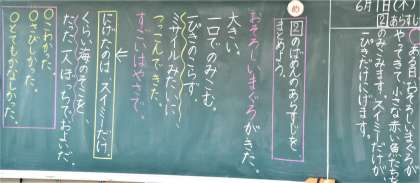 6月1日(木)
② あらす
○ある日、おそろしいまぐろが
やってきて、小さな赤い魚たちを
のみこみます。スイミーだけが、
一ぴきだけにげます。
め
②のばめんのあらすじを、
まとめよう。
おそろしいまぐろがきた。
大きい。
一口でのみこむ。
一ぴきのこらず
ミサイルみたいに
つっこんできた。
すごいはやさで。
にげたのは スイミーだけ。
くらい海のそこを
たった一人ぼっちでおよいだ。
○こわかった。
○さびしかった。
○とてもかなしかった。